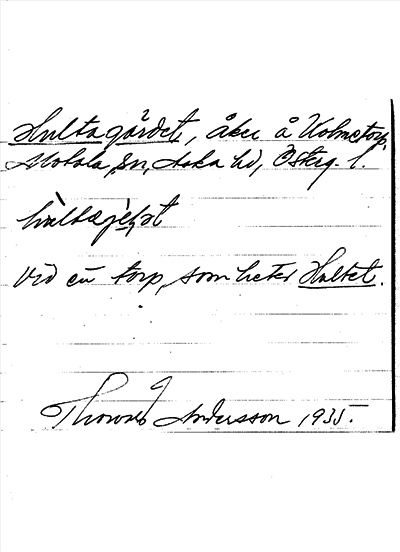 Hultagärdet, åker å Holmstorp,
Motala sn, Aska hd, Österg. l.
Vid en torp, som heter Hultet.
Thorsten Andersson 1935.